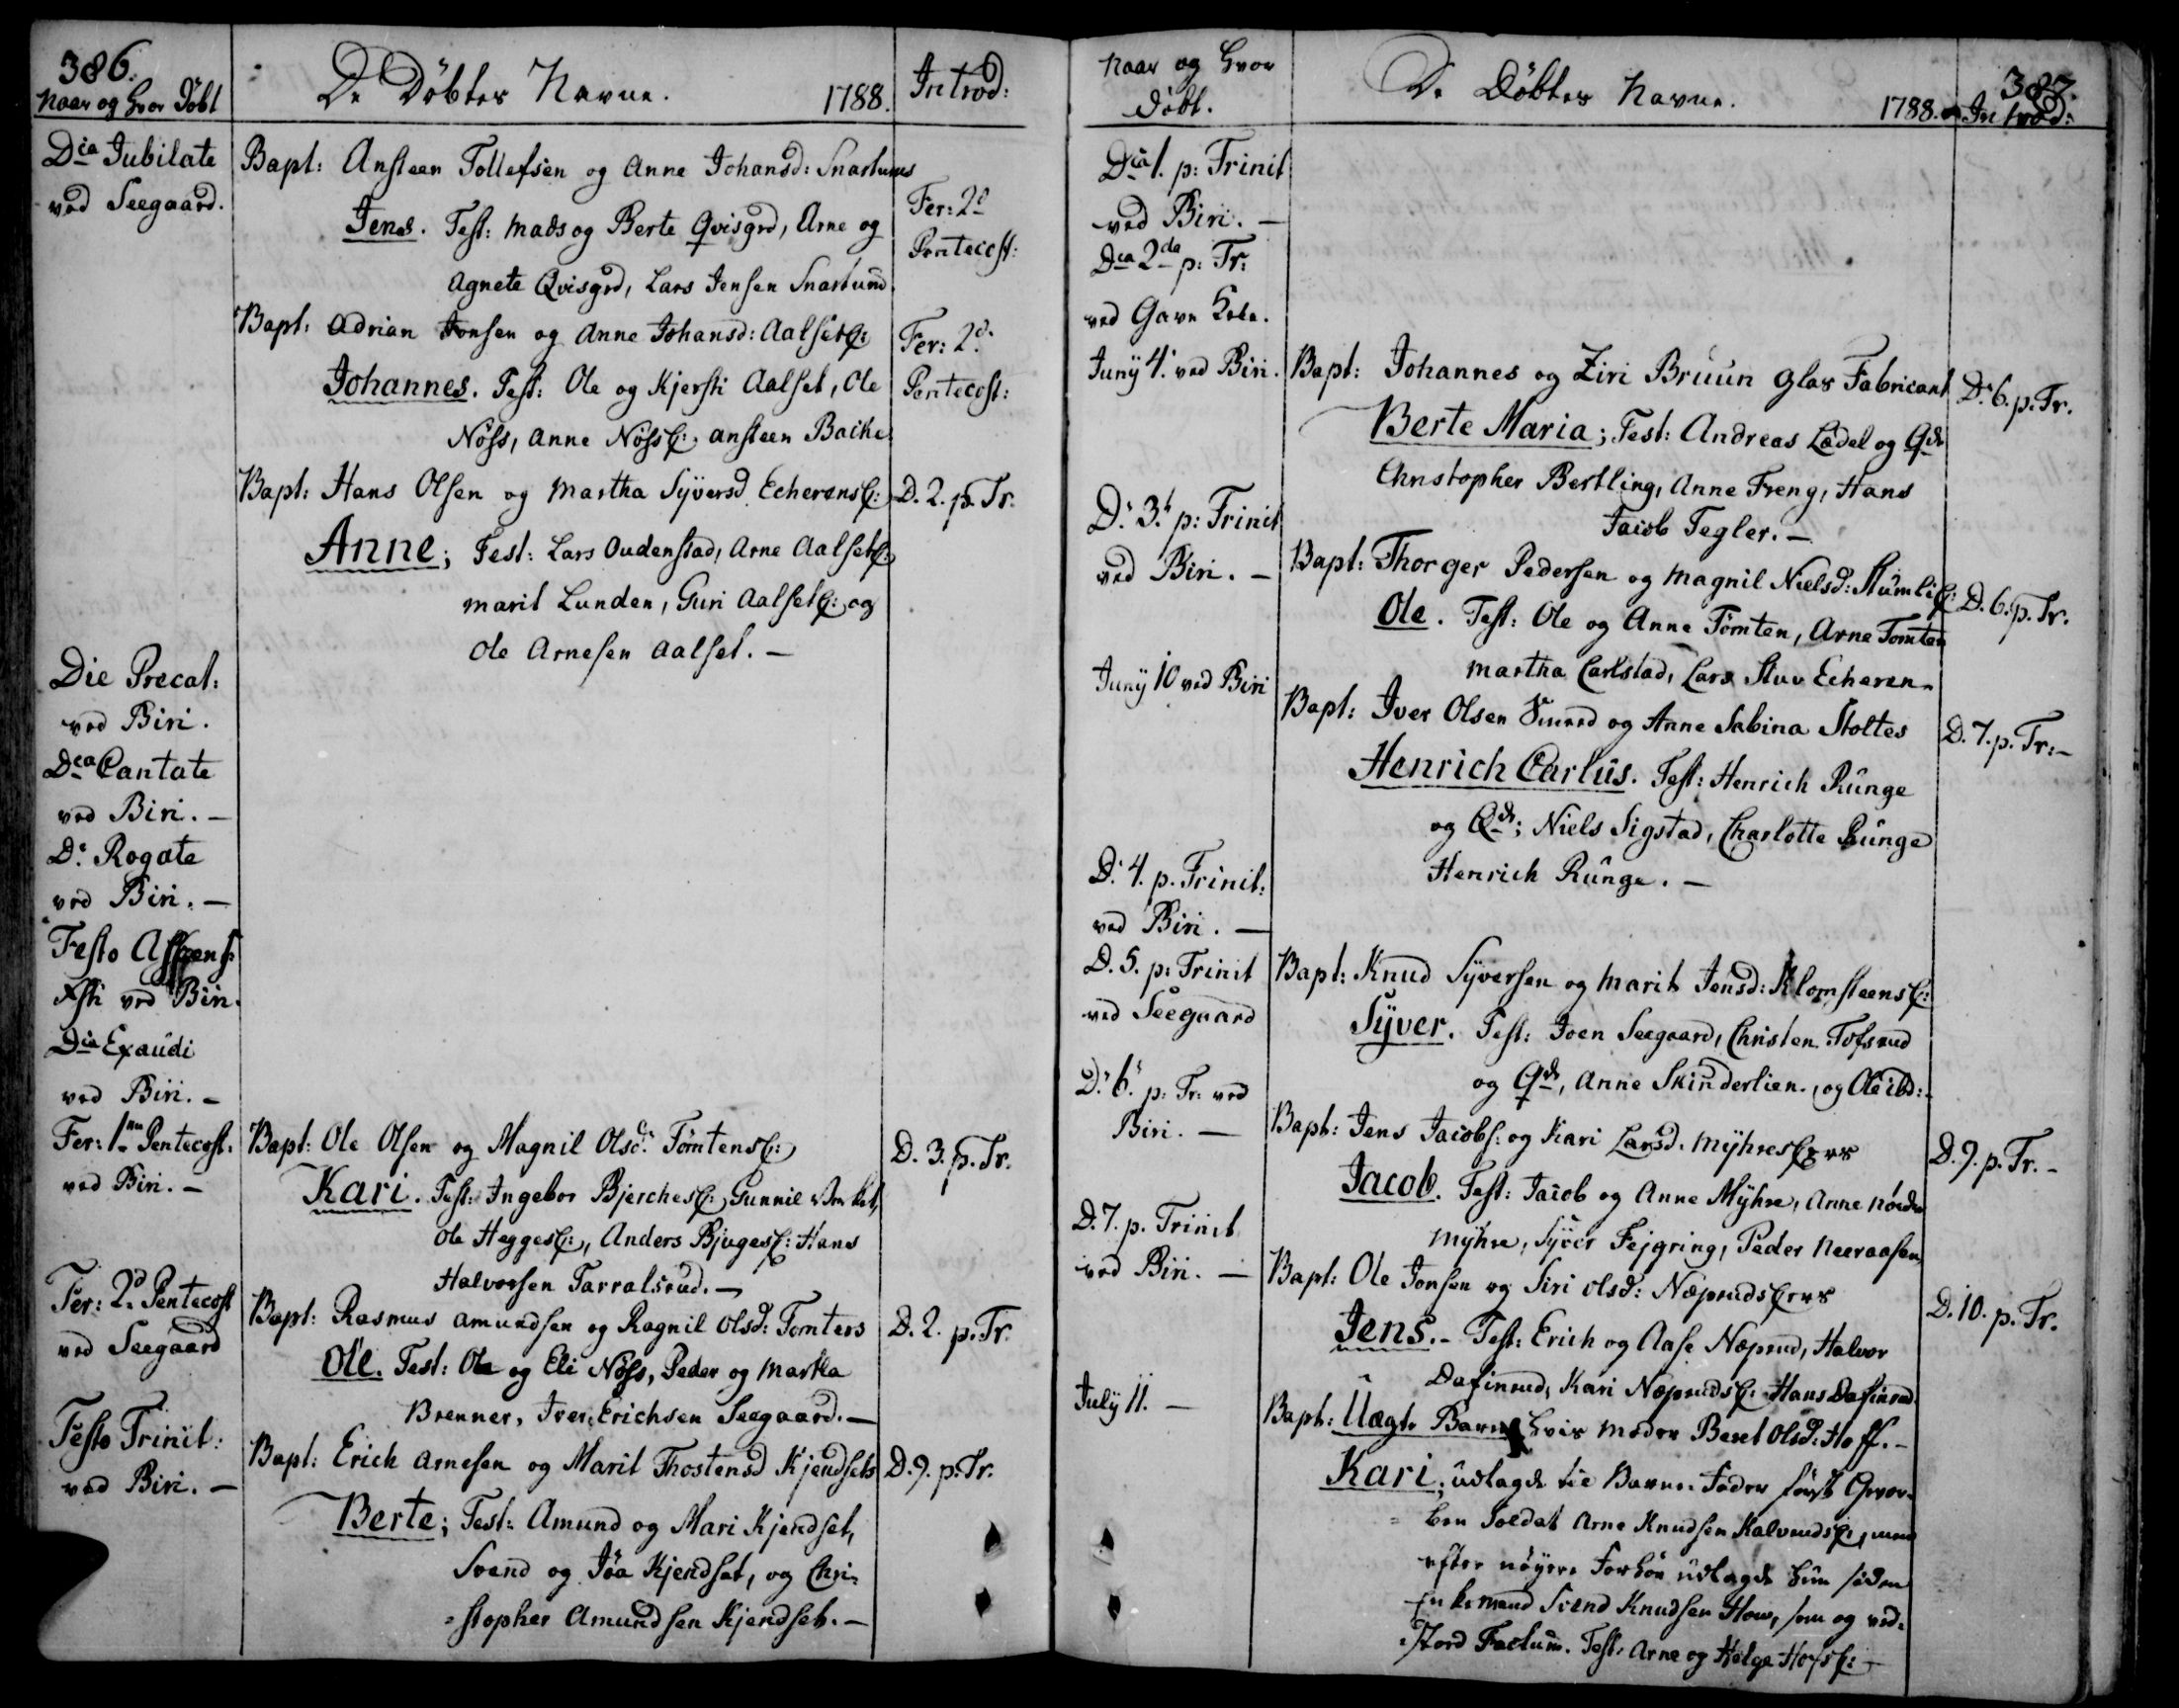 386.
Naar og hvor Döbt
De Döbtes Navne.
1788.
Introd:
Dca Jubilate
ved Seegaard.
Bapt: Ansteen Tollefsen og Anne Johansd: Snartums
Jens. Test: Mads og Berte Qvisgrd, Arne og
Agnete Qvisgrd, Lars Jensen Snartum
Fer: 2d
Pentecost:
Bapt: Adrian Jonsen og Anne Johansd: Aalset
Johannes. Test: Ole og Kjersti Aalset, Ole
Nöss, Anne Nöss, Ansteen Bache
Fer: 2d
Pentecost:
Bapt: Hans Olsen og Martha Syversd Echerens
D. 2. p. Tr.
Anne; Test: Lars Oudenstad, Arne Aalset
Marit Lunden, Guri Aalset og
Ole Arnesen Aalset. —
Die Precat:
ved Biri.
Dca Cantate
ved Biri. —
D. Rogate
ved Biri. —
Festo Ascens:
Xsti ved Biri.
Dca Exaudi
ved Biri. —
Fer: 1ma Pentecost.
ved Biri. —
Bapt: Ole Olsen og Magnil Olsd: Tömtens
D. 3. p. Tr.
Kari. Test: Ingebor Bjerches, Gunnil
Ole Hegges, Anders Bjuges: Hans
Halvorsen Tarralsrud. —
Fer: 2d Pentecost
ved Seegaard
Bapt: Rasmus Amundsen og Ragnil Olsd: Tomters
D. 2. p. Tr.
Ole. Test: Ole og Eli Nöss, Peder og Martha
Brenner, Iver Erichsen Seegaard. —
Festo Trinit:
ved Biri. —
Bapt: Erich Arnesen og Marit Thostensd Kjendset
D. 9. p. Tr.
Berte; Test: Amund og Mari Kjendset,
Svend og Jöa Kjendset, og Chri=
=stopher Amundsen Kjendset. —
Naar og Hvor
Döbt.
De Döbtes Navne.
1788.
387.
Introd:
Dca 1. p: Trinit
ved Biri. —
Dca 2da p: Tr:
ved
Juny 4. ved Biri.
Bapt: Johannes og Ziri Bruun Glas Fabricant
D. 6. p. Tr.
Berte Maria; Test: Andreas Lædel og Qde
Christopher Bertling, Anne Freng, Hans
Jacob Tegler. —
D. 3. p: Trinit
ved Biri. —
Bapt: Thorger Pedersen og Magnil Nielsd: Stumli
D. 6. p. Tr.
Ole. Test: Ole og Anne Tömten, Arne Tomten
Martha Carlstad, Lars Stuv Echeren.
Juny 10 ved Biri
Bapt: Iver Olsen Smed og Anne Sabina Stoltes
D. 7. p. Tr: —
Henrich Carlus. Test: Henrich Runge
og Qde; Niels Sigstad, Charlotte Runge
Henrich Runge. —
D. 4. p. Trinit:
ved Biri. —
D. 5. p: Trinit
ved Seegaard
Bapt: Knud Syversen og Marit Jensd: Klomsteens
Syver. Test: Joen Seegaard, Christen Tofsrud
og Qde, Anne Skinderlien, og Ole ibd:
D. 6. p: Tr: ved
Biri. —
Bapt: Jens Jacobs: og Kari Larsd. Myhres
D. 9. p. Tr. —
Jacob. Test: Jacob og Anne Myhre, Anne Nordre
Myhre, Syver Fejgring, Peder Neeraasen
D. 7. p. Trinit
ved Biri. —
Bapt: Ole Jonsen og Siri Olsd: Næpruds
D. 10. p. Tr.
Jens. — Test: Erich og Aase Næprud, Halvor
Dafinrud, Kari Næpruds Hans Dafinrud
July 11. —
Bapt: Uægte Barn Hvis Moder Beret Olsd: Hoff. —
Kari; udlagde til Barne Fader först Gevor=
=ben Soldat Arne Knudsen Kalveruds, men
efter nöyere Forhör udlagde hun siden
Enkemand Svend Knudsen How, som og ved=
=stod Factum. Test: Arne og Helge Hofs —